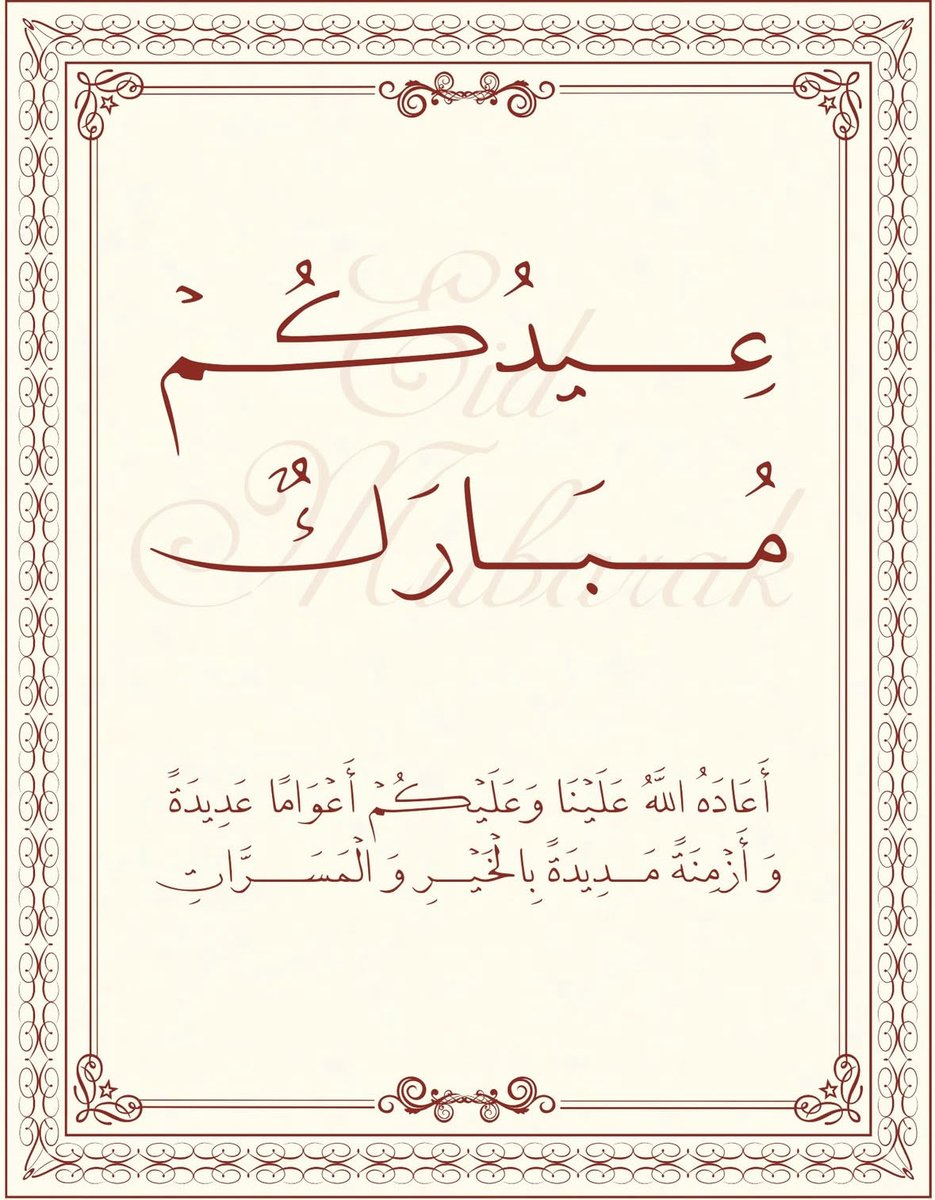 عِيدُكُمْ
مُبَارَكٌ
Eid
Mubarak
أَعَادَهُ اللَّهُ عَلَيْنَا وَعَلَيْكُمْ أَعْوَامًا عَدِيدَةً
وَ أَزْمِنَةً مَدِيدَةً بِالْخَيْرِ وَ الْمَسَرَّاتِ